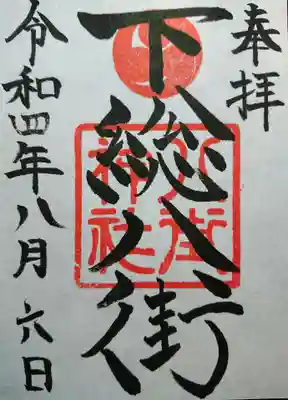 奉拝
下総八街
八街
神社
令和四年八月六日